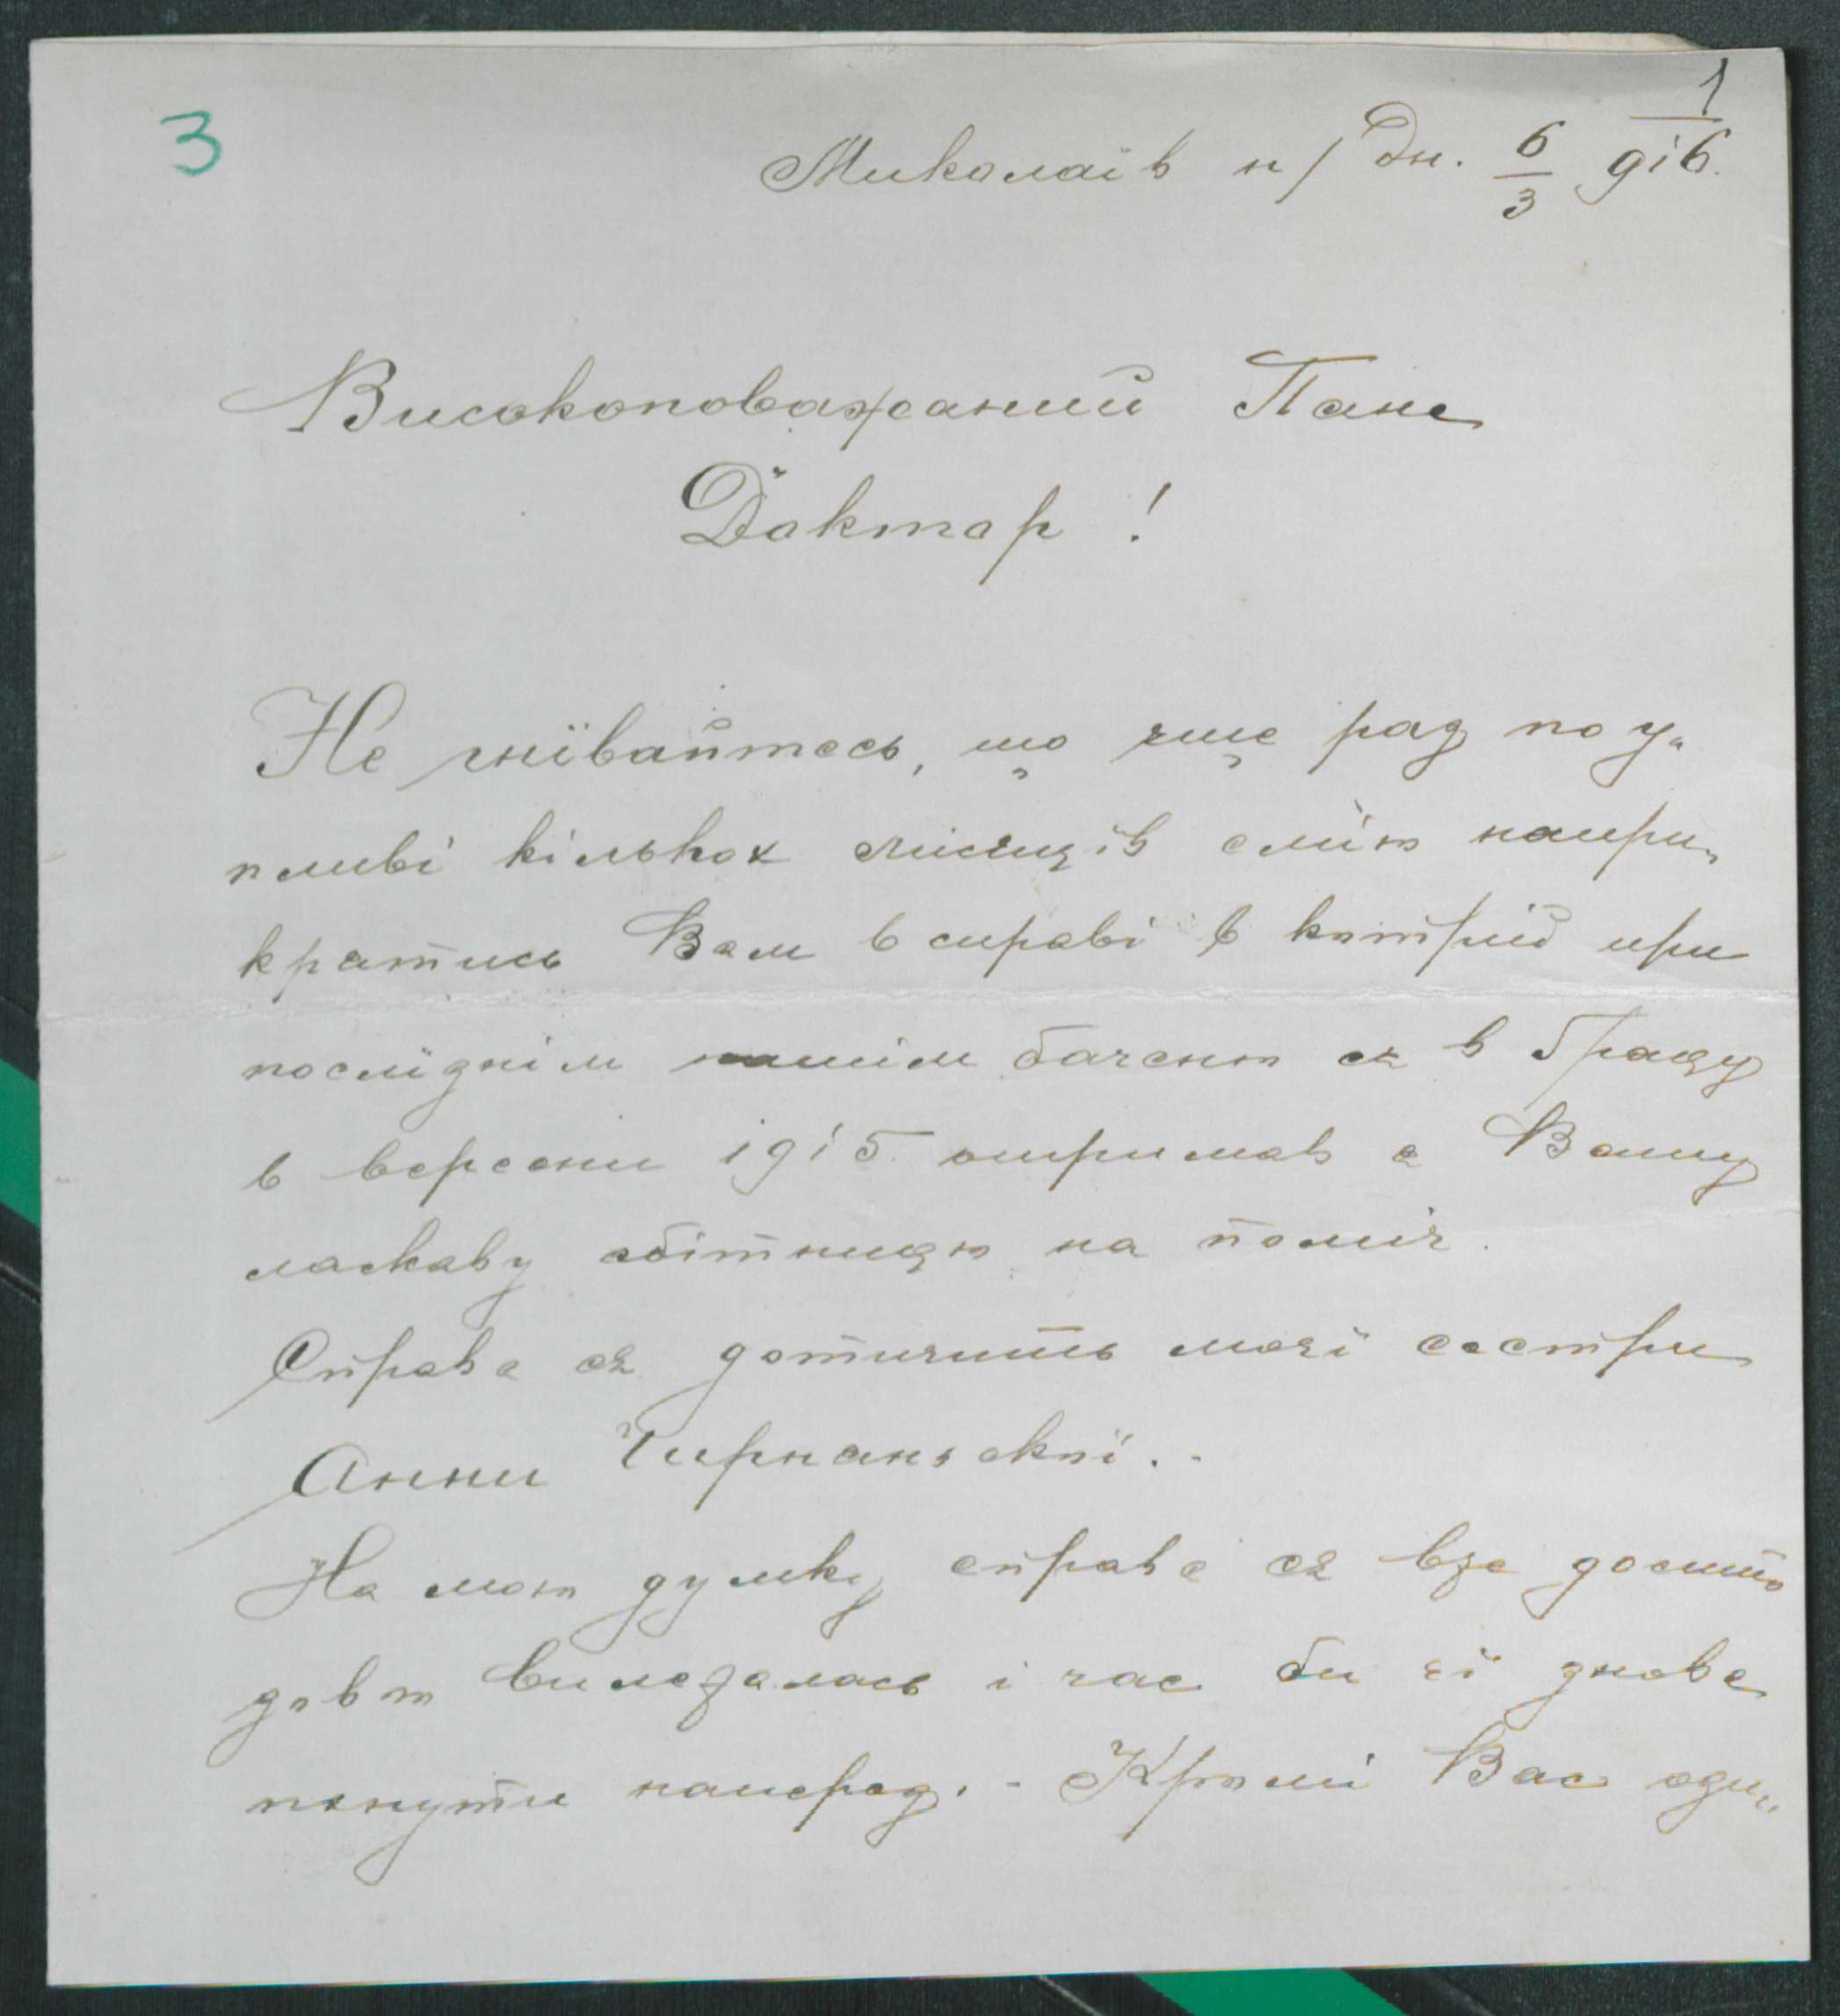 1
3
Миколаїв н/Дн. 6/3 916.
Високоповажаний Пане
Доктор!
Не гнївайтесь, що єще раз по у„
пливі кількох місяцїв смію напри„
кратись Вам в справі в котрій при
послїднїм нашім баченю ся в Грацу
в вересни 1915. отримав я Вашу
ласкаву обітницю на поміч.
Справа ся дотичить моєї сестри
Анни
На мою думку справа ся вже досить
довго вилежалась і час би єї знова
попхнути наперед. - Кромі Вас оди„